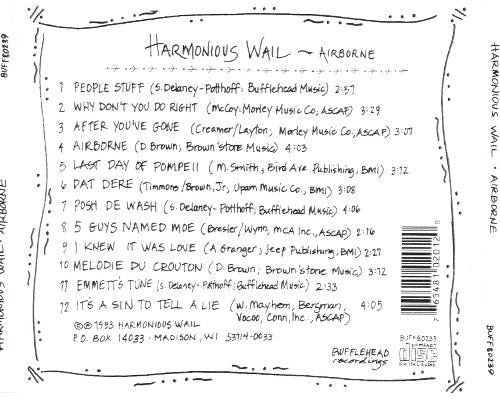 HARMONIOUS WAIL ~ AIRBORNE
1 PEOPLE STUFF (S. Delaney-Potthoff; Bufflehead Music) 2:57
2 WHY DON'T YOU DO RIGHT (McCoy; Morley Music Co., ASCAP) 3:29
3 AFTER YOU'VE GONE (Creamer/Layton; Morley Music Co., ASCAP) 3:07
4 AIRBORNE (D. Brown; Brown'stone Music) 4:03
5 LAST DAY OF POMPEII (M. Smith; Bird Ave. Publishing, BMI) 3:12
6 DAT DERE (Timmons/Brown, Jr; Upam Music Co., BMI) 3:08
7 POSH DE WASH (S. Delaney-Potthoff; Bufflehead Music) 4:06
8 5 GUYS NAMED MOE (Bresler/Wynn, MCA Inc., ASCAP) 2:16
9 I KNEW IT WAS LOVE (A Granger; Jeep Publishing, BMI) 2:27
10 MELODIE DU CROUTON (D. Brown; Brown'stone Music) 3:12
11 EMMETT'S TUNE (S. Delaney-Potthoff; Bufflehead Music) 2:33
12 IT'S A SIN TO TELL A LIE (W. Mayhem, Bergman, Vocoo, Conn, Inc., ASCAP) 4:05
©℗ 1993 HARMONIOUS WAIL
P.O. BOX 14033 · MADISON, WI 53714-0033
BUFFLEHEAD
recordings
7 65481 02012 0
BUFF80239
COMPACT
disc
DIGITAL AUDIO
HARMONIOUS WAIL · AIRBORNE
BUFF80239
HARMONIOUS WAIL · AIRBORNE
BUFF80239